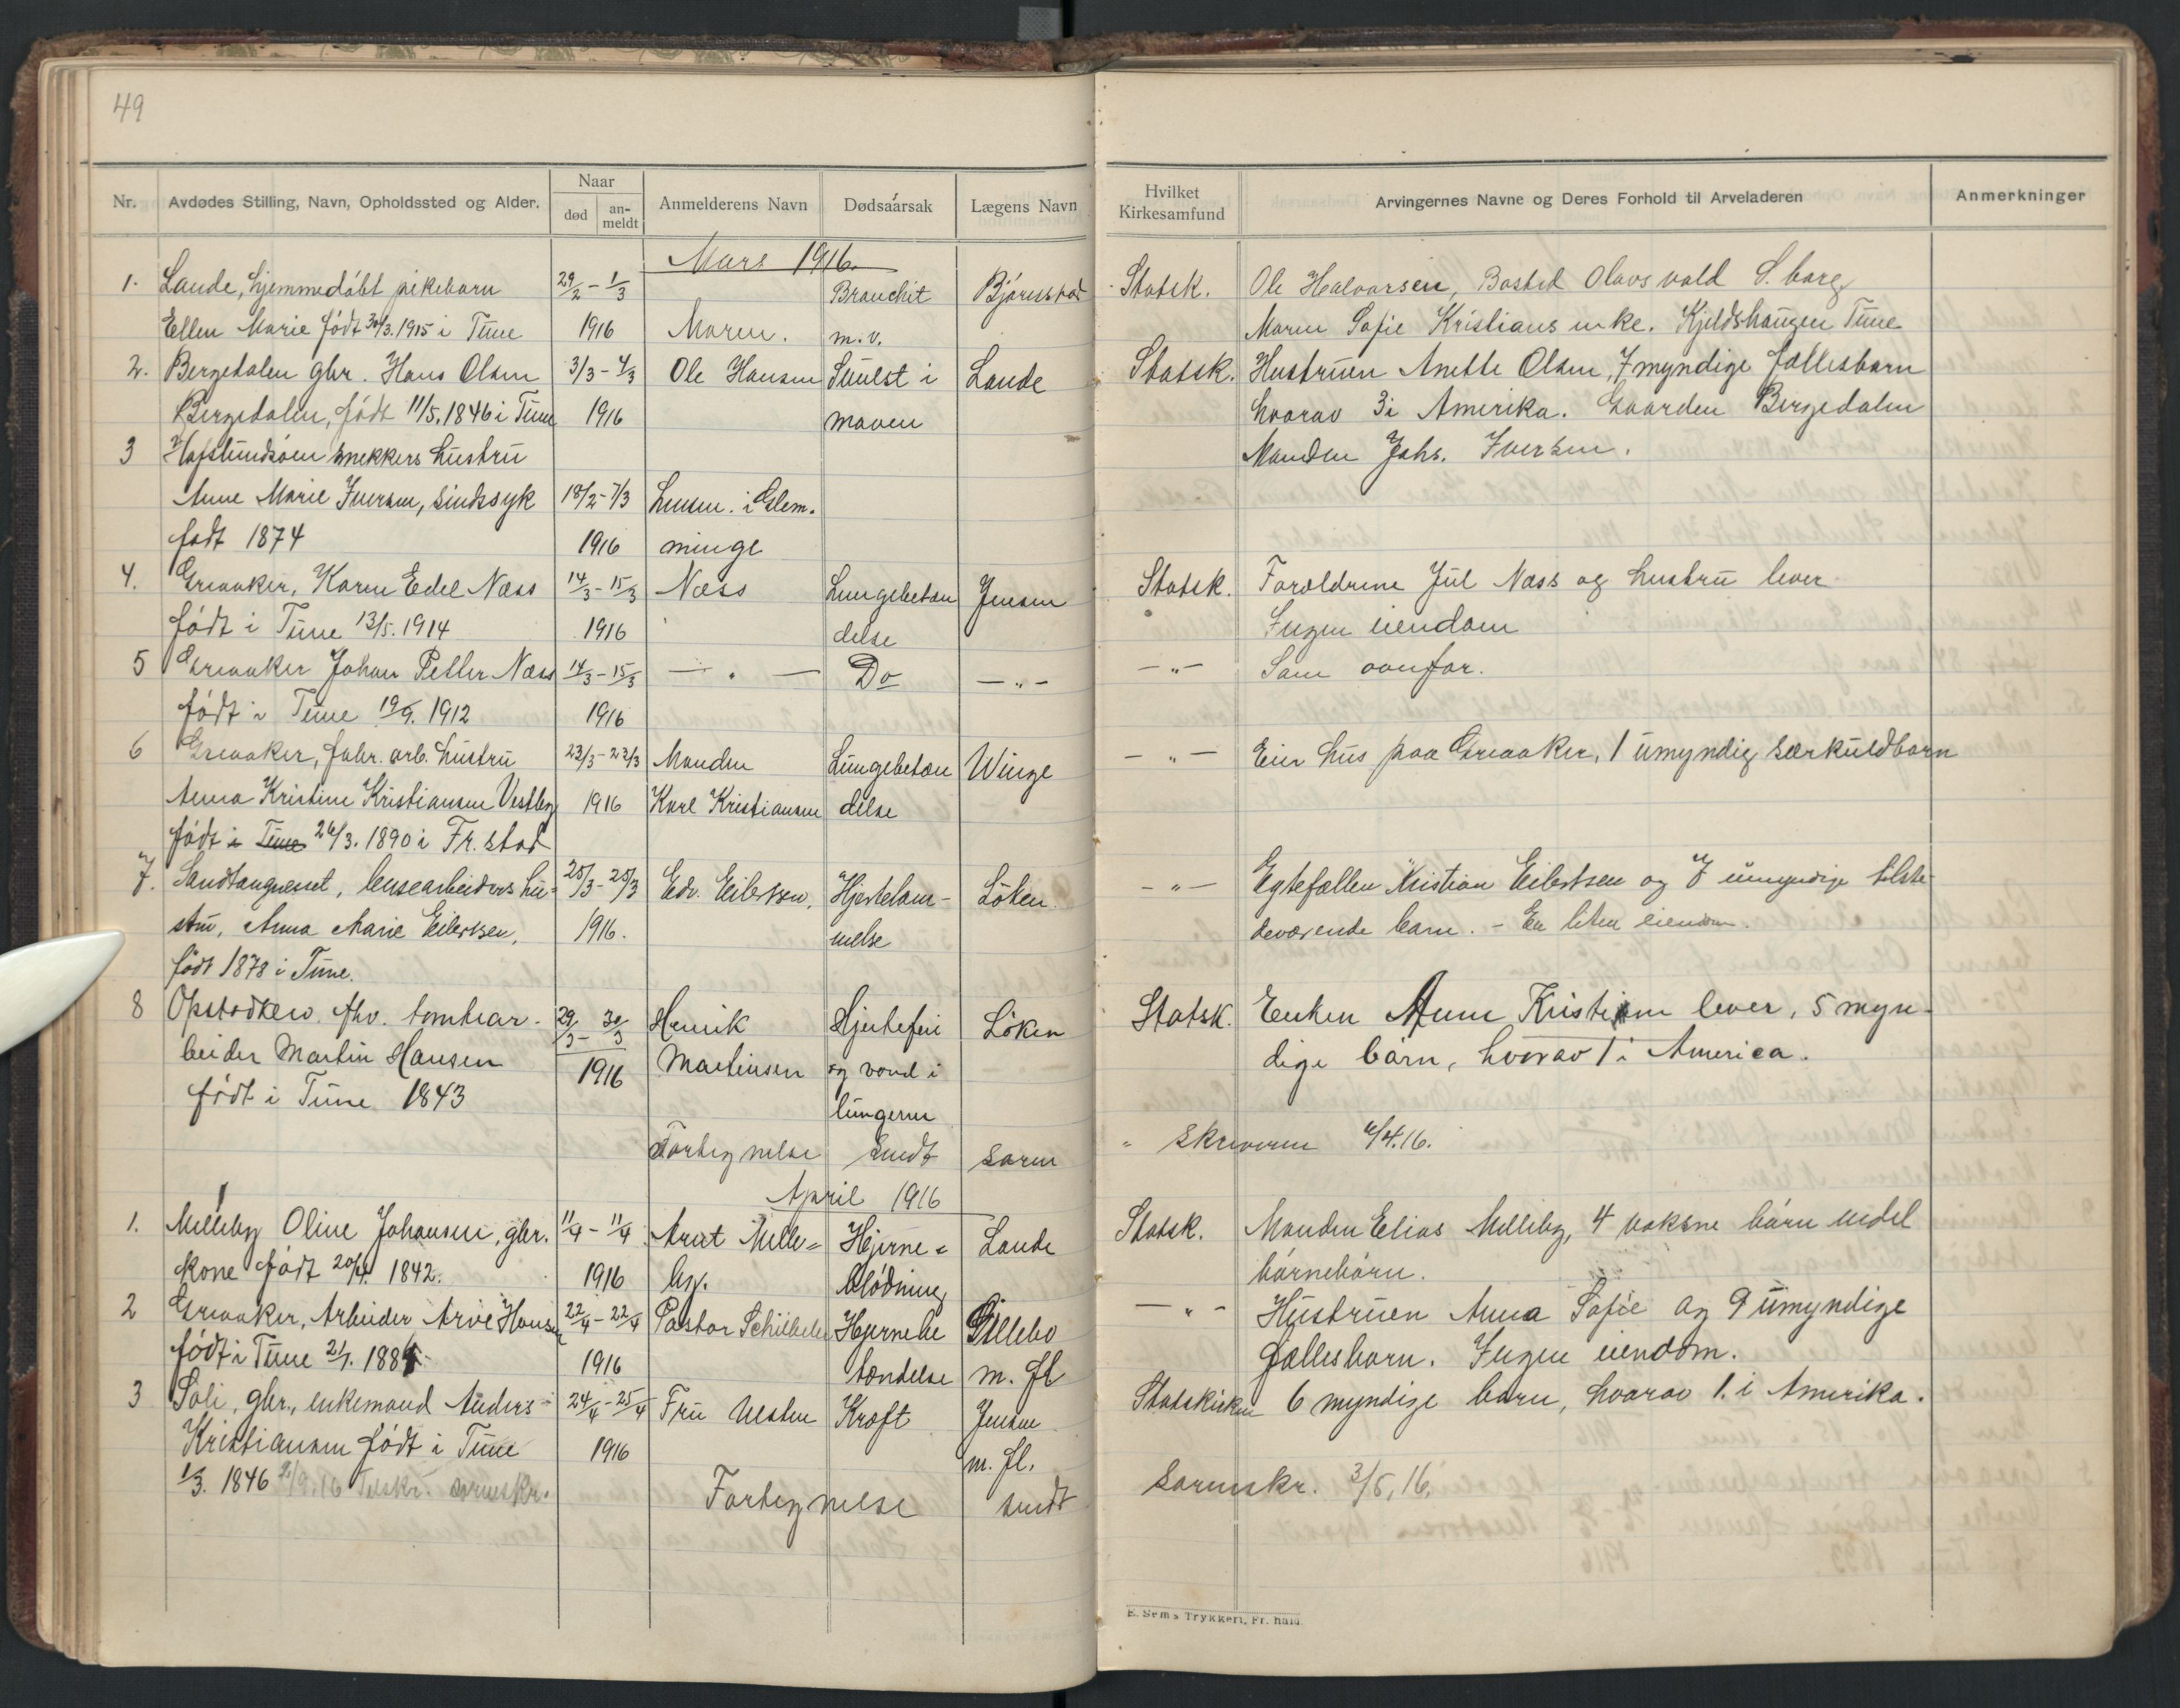 49
Nr. Avdødes Stilling, Navn, Opholdssted og Alder. Naar død an-meldt Anmelderens Navn Dødsaarsak Lægens Navn Hvilket Kirkesamfund Arvingernes Navne og Deres Forhold til Arveladeren Anmerkninger
Mars 1916.
1. Lande, hjemmedøbt pikebarn 29/2 - 1/3 Bronchit Statsk. Ole Halvorsen, Bosted Olavs vold S.borg
Ellen Marie født 30/3.1915 i Tune 1916 Moren. m.v. Maren Sofie Kristians enke. Kjeldshaugen Tune
2. Bergedalen gbr. Hans Olsen 3/3 - 4/3 Ole Hansen Svulst i Lande Statsk. Hustruen Anette Olsen, 7 myndige fællesbarn
Bergedalen, født 11/5.1846 i Tune 1916 maven hvorav 3 i Amerika. Gaarden Bergedalen
3 Hafslundsøen snekkers hustru Manden Johs. Iversen.
Anne Marie Iversen, sindssyk 18/2 - 7/3 Lensm. i Glem-
født 1874 1916 minge
4. Greaaker, Karen Edel Næss 14/3 - 15/3 Næss Lungebetæn Jensen Statsk. Forældrene Jul Næss og hustru lever
født i Tune 13/5.1914 1916 delse Ingen eiendom
5 Greaaker Johan Petter Næss 14/3 - 15/3 — " — Do — " — — " — Som ovenfor.
født i Tune 19/9.1912 1916
6 Greaaker, fabr. arb. hustru 23/3 - 23/3 Manden Lungebetæn Winge — " — Eier hus paa Greaaker, 1 umyndig særkuldbarn
Anna Kristine Kristiansen Vestby 1916 Karl Kristiansen delse
født i Tune 26/3.1890 i Fr. stad
7. Sandtangneset, lensearbeiders hu- 25/3 - 25/3 Edv. Eilertsen, Hjertelam- Löken. — " — Egtefællen Kristian Eilertsen og 7 umyndige tilste-
stru, Anna Marie Eilertsen, 1916. melse deværende barn. - En liten eiendom.
født 1878 i Tune.
8 Opstadkew. fhv. tomtear- 29/3 - 30/3 Henrik Hjertefeil Löken Statsk. Enken Anne Kristine lever, 5 myn-
beider Martin Hansen 1916 Martinsen og vand i dige børn, hvorav 1 i America.
født i Tune 1843 lungerne
Fortegnelse sendt soren " skriveren 4/4.16.
April 1916
1. Milleby Oline Johansen, gbr. 11/4 - 11/4 Arnt Mille- Hjerne- Lande Statsk. Manden Elias Milleby, 4 voksne børn uidel
kone født 20/4. 1842. 1916 by. blødning børnebørn.
2 Greaaker, Arbeider Arve Hansen 22/4 - 22/4 Pastor Hjernebe Gillebo — " — Hustruen Anna Sofie og 9 umyndige
født i Tune 2/1. 1884 1916 tændelse m. fl fællesbarn. Ingen eiendom.
3 Soli, gbr., enkemand Anders 24/4 - 25/4 Fru Kræft Jensen Statskirken 6 myndige barn, hvorav 1. i Amerika.
Kristiansen født i Tune 1916 m. fl.
1/3. 1846 Fortegnelse sendt Sorenskr. 3/5, 16.
E. Sems Trykkeri, Fr. hald.